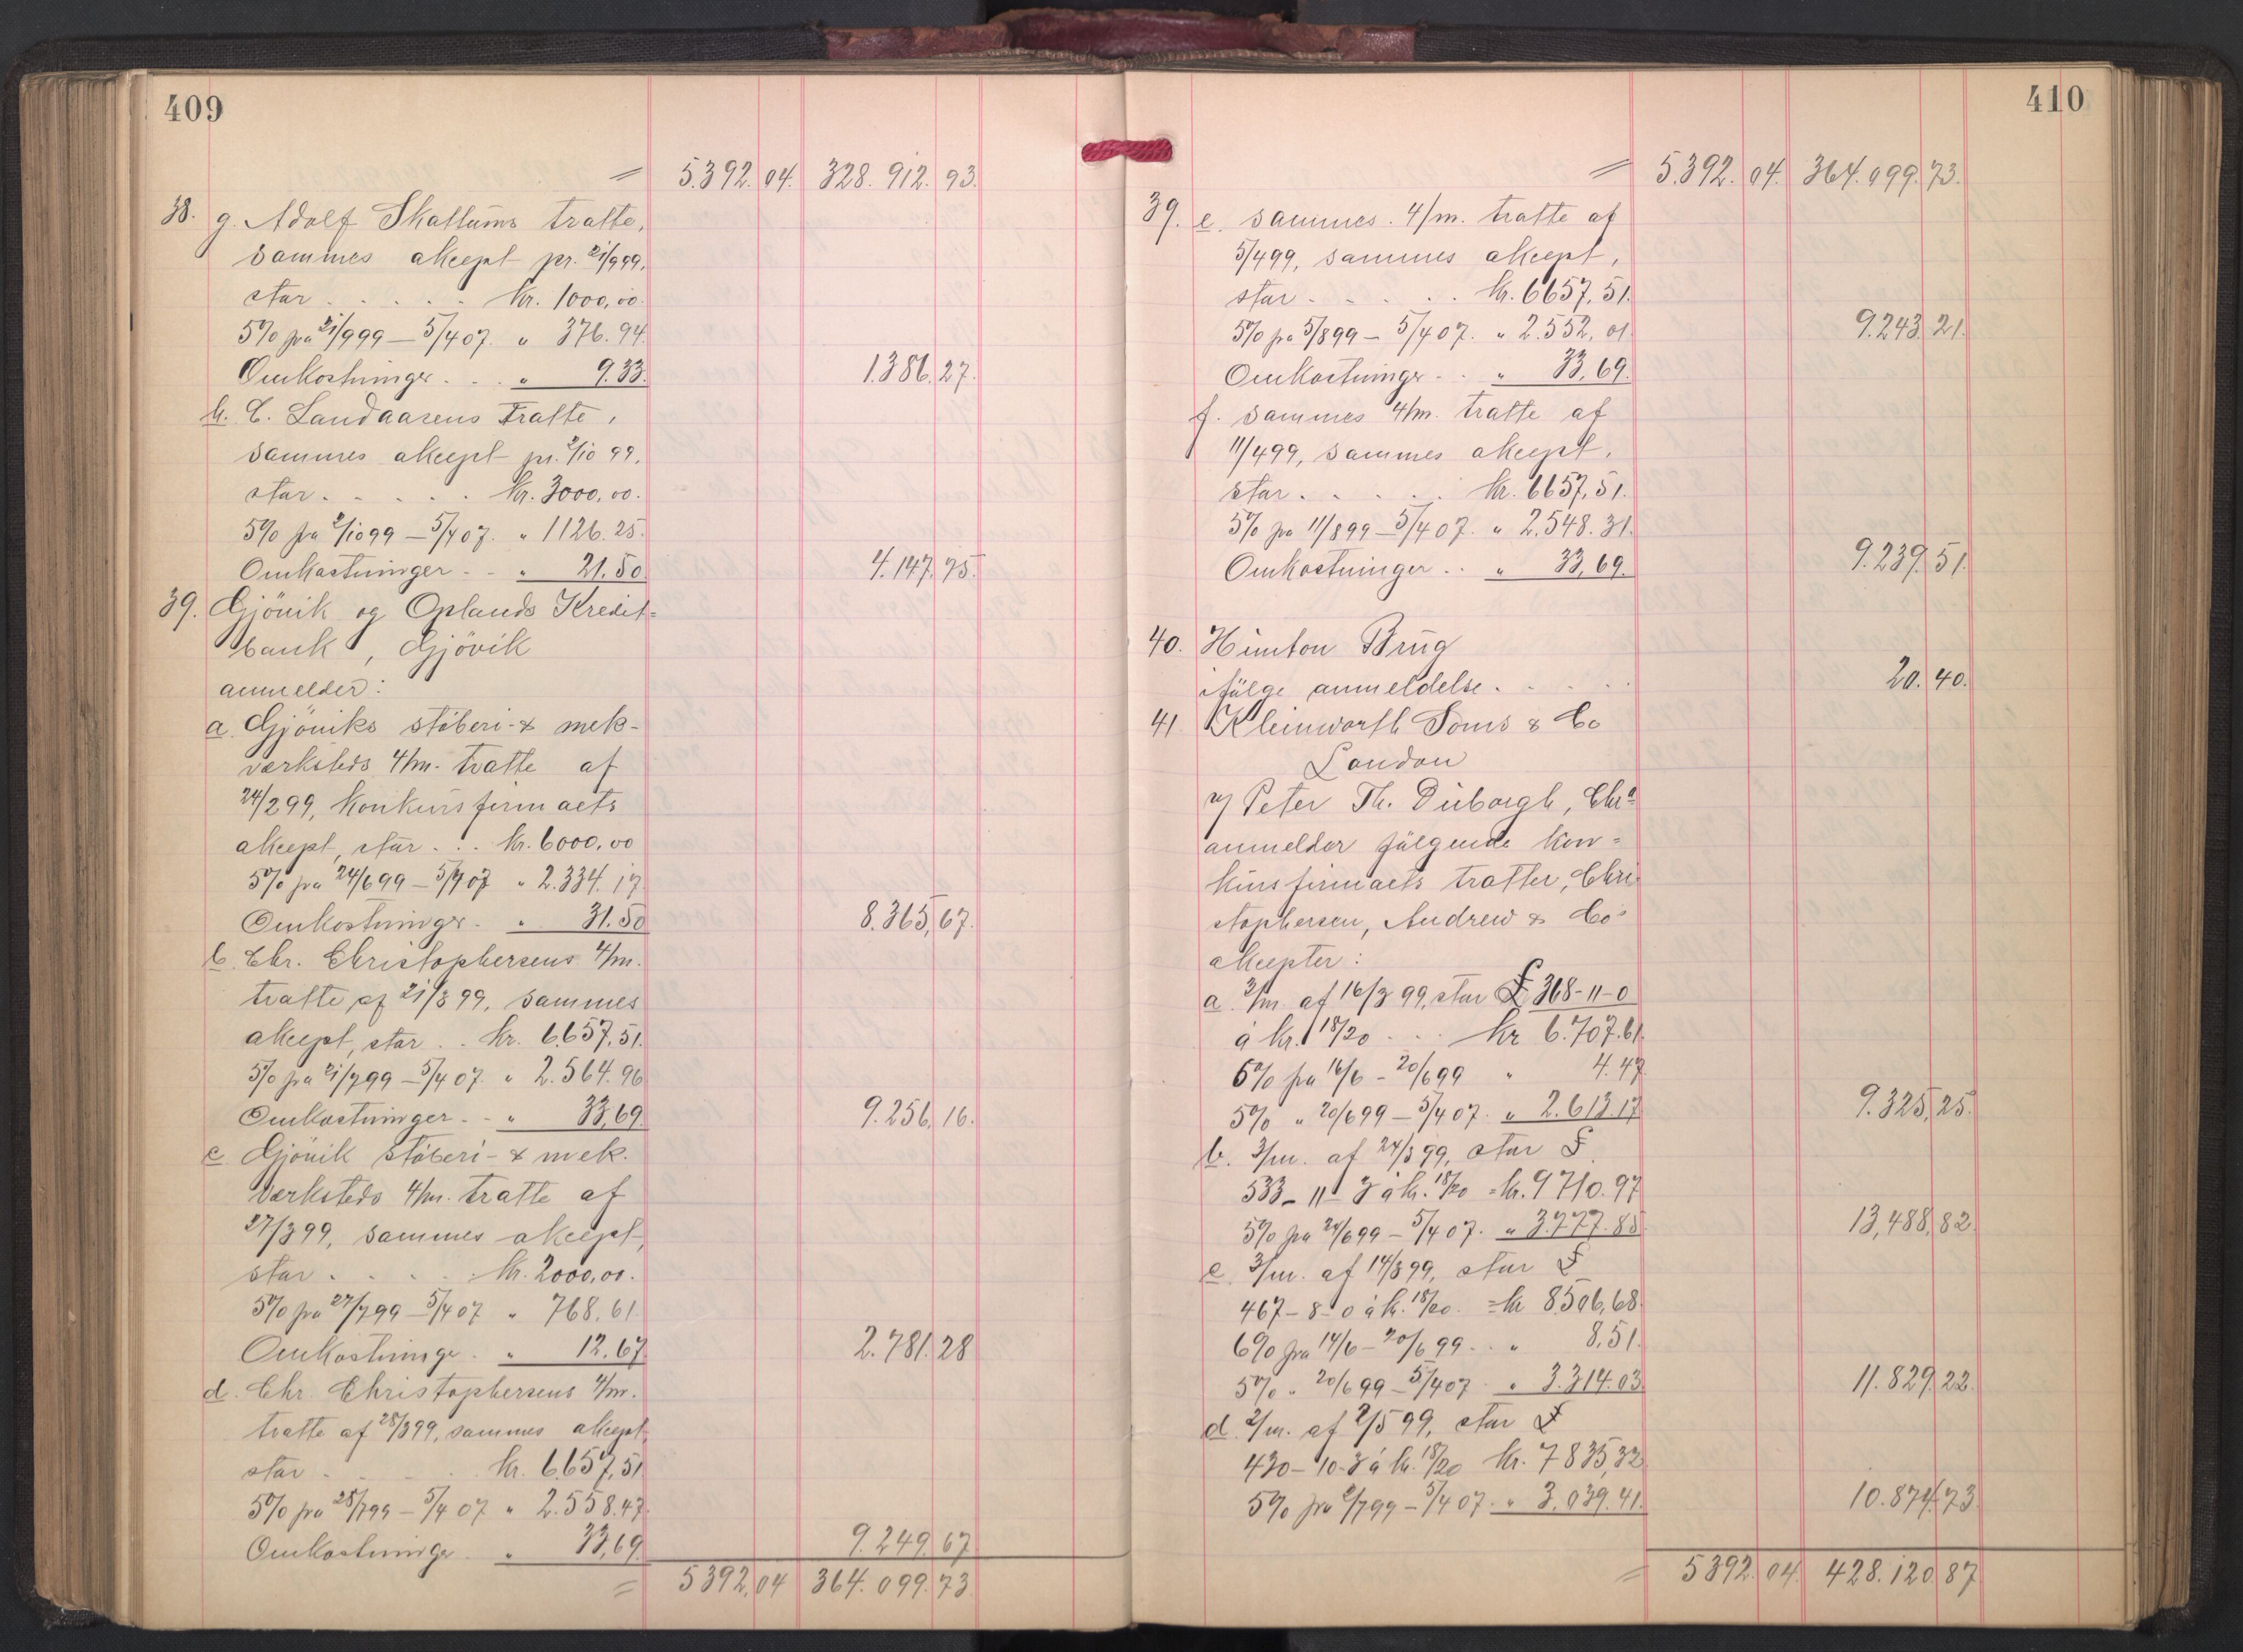 409
= 5.392.04. 328.912.93.
38. g. Adolf Skattums tratte,
sammes akcept pr. 21/999,
stor . . . . . Kr. 1000,00.
5% fra 21/999 – 5/407. " 376.94.
Omkostninger . . . " 9.33. 1.386.27.
h. C. Landaasens tratte,
sammes akcept pr. 2/10 99,
stor . . . . . Kr. 3000,00.
5% fra 2/10 99 – 5/407. " 1126.25.
Omkostninger - - " 21.50 4.147.75.
39. Gjövik og Oplands Kredit=
bank, Gjövik
anmelder:
a. Gjöviks stöberi- & mek-
værksteds 4/m. tratte af
24/299, konkursfirmaets
akcept, stor . . . Kr. 6000,00
5% fra 24/699 – 5/407 " 2.334.17
Omkostninger . " 31.50 8.365,67.
b. Chr. Christophersens 4/m.
tratte af 21/3 99, sammes
akcept, stor . . Kr. 6.657,51.
5% fra 21/799 – 5/407. " 2.564.96
Omkostninger - - " 33,69. 9.256,16.
c. Gjövik stöberi- & mek.
værksteds 4/m. tratte af
27/399, sammes akcept,
stor . . . . . Kr. 2000,00.
5% fra 27/799 – 5/407 " 768.61.
Omkostninge . " 12.67 2.781.28
d. Chr. Christophersens 4/m.
tratte af 28/399, sammes akcept,
stor . . . . Kr. 6.657,51
5% fra 28/799 – 5/407 " 2.558.47.
Omkostninge . " 33,69. 9.249.67
= 5392,04 364.099.73
410
= 5.392.04. 364.099.73.
39. e. sammes 4/m. tratte af
5/499, sammes akcept,
stor . . . . . Kr. 6657,51.
5% fra 5/899 – 5/407. " 2.552,01. 9.243.21.
Omkostninger . . " 33,69.
f. sammes 4/m. tratte af
11/499, sammes akcept,
stor . . . . . Kr. 6657,51.
5% fra 11/899 – 5/407. " 2.548.31.
Omkostninger . . " 33,69. 9.239.51.
40. Hunton Brug
ifölge anmeldelse . . . . . 20.40.
41. Kleinworth Sons & Co
London
v/ Peter Th. Duborgh, Chra
anmelder fölgende kon=
kursfirmaets tratter, Chri
stophersen, Andrew & Co's
akcepter:
a. 3/m. af 16/3 99, stor £ 368-11-0
á kr. 18/20 . . . Kr 6.707.61.
6% fra 16/6 – 20/699 " 4.47
5% " 20/699 – 5/407. " 2.613.17 9.325,25.
b. 3/m. af 24/3 99, stor £
533-11-3 á kr. 18/20 = Kr. 9710.97
5% fra 24/699 – 5/407. " 3.777.85. 13,488,82.
c. 3/m. af 14/3 99, stor £
467-8-0 á kr. 18/20. = Kr 8506,68.
6% fra 14/6 – 20/699 . . " 8,51.
5% " 20/699 – 5/407 " 3.314.03. 11.829.22.
d. 2/m. af 2/5 99, stor £
430-10-3 á kr. 18/20 Kr. 7835,32
5% fra 2/799 – 5/407. " 3.039.41. 10.874.73.
= 5392.04. 428.120.87